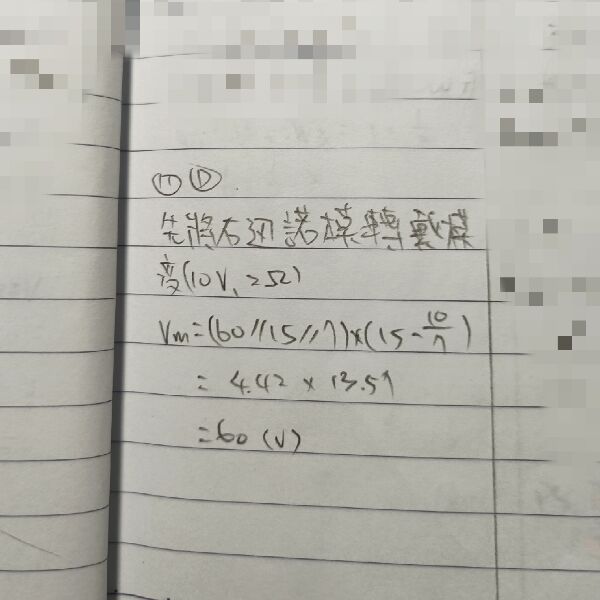 ⑪ Ⓓ.
先將右迴諾模轉戴模
度(10V、2Ω)
Vm=(60//15//7)×(15-10/7)
= 4.42 × 13.57
=60 (V)